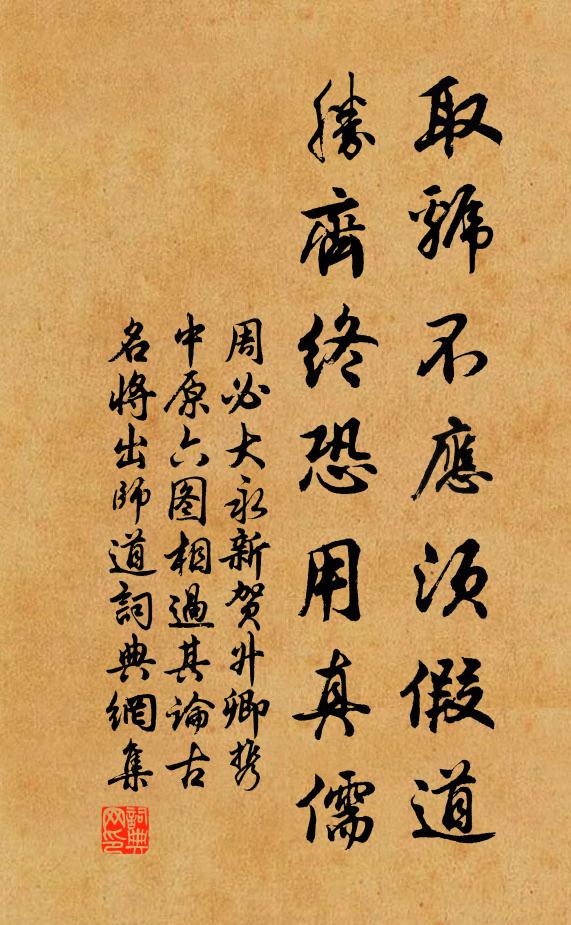 取虢不應須假道
勝齊終恐用真儒
周必大永新賀升卿携
中原六图相過其論古
名將出師道詞典網集
詞典网印